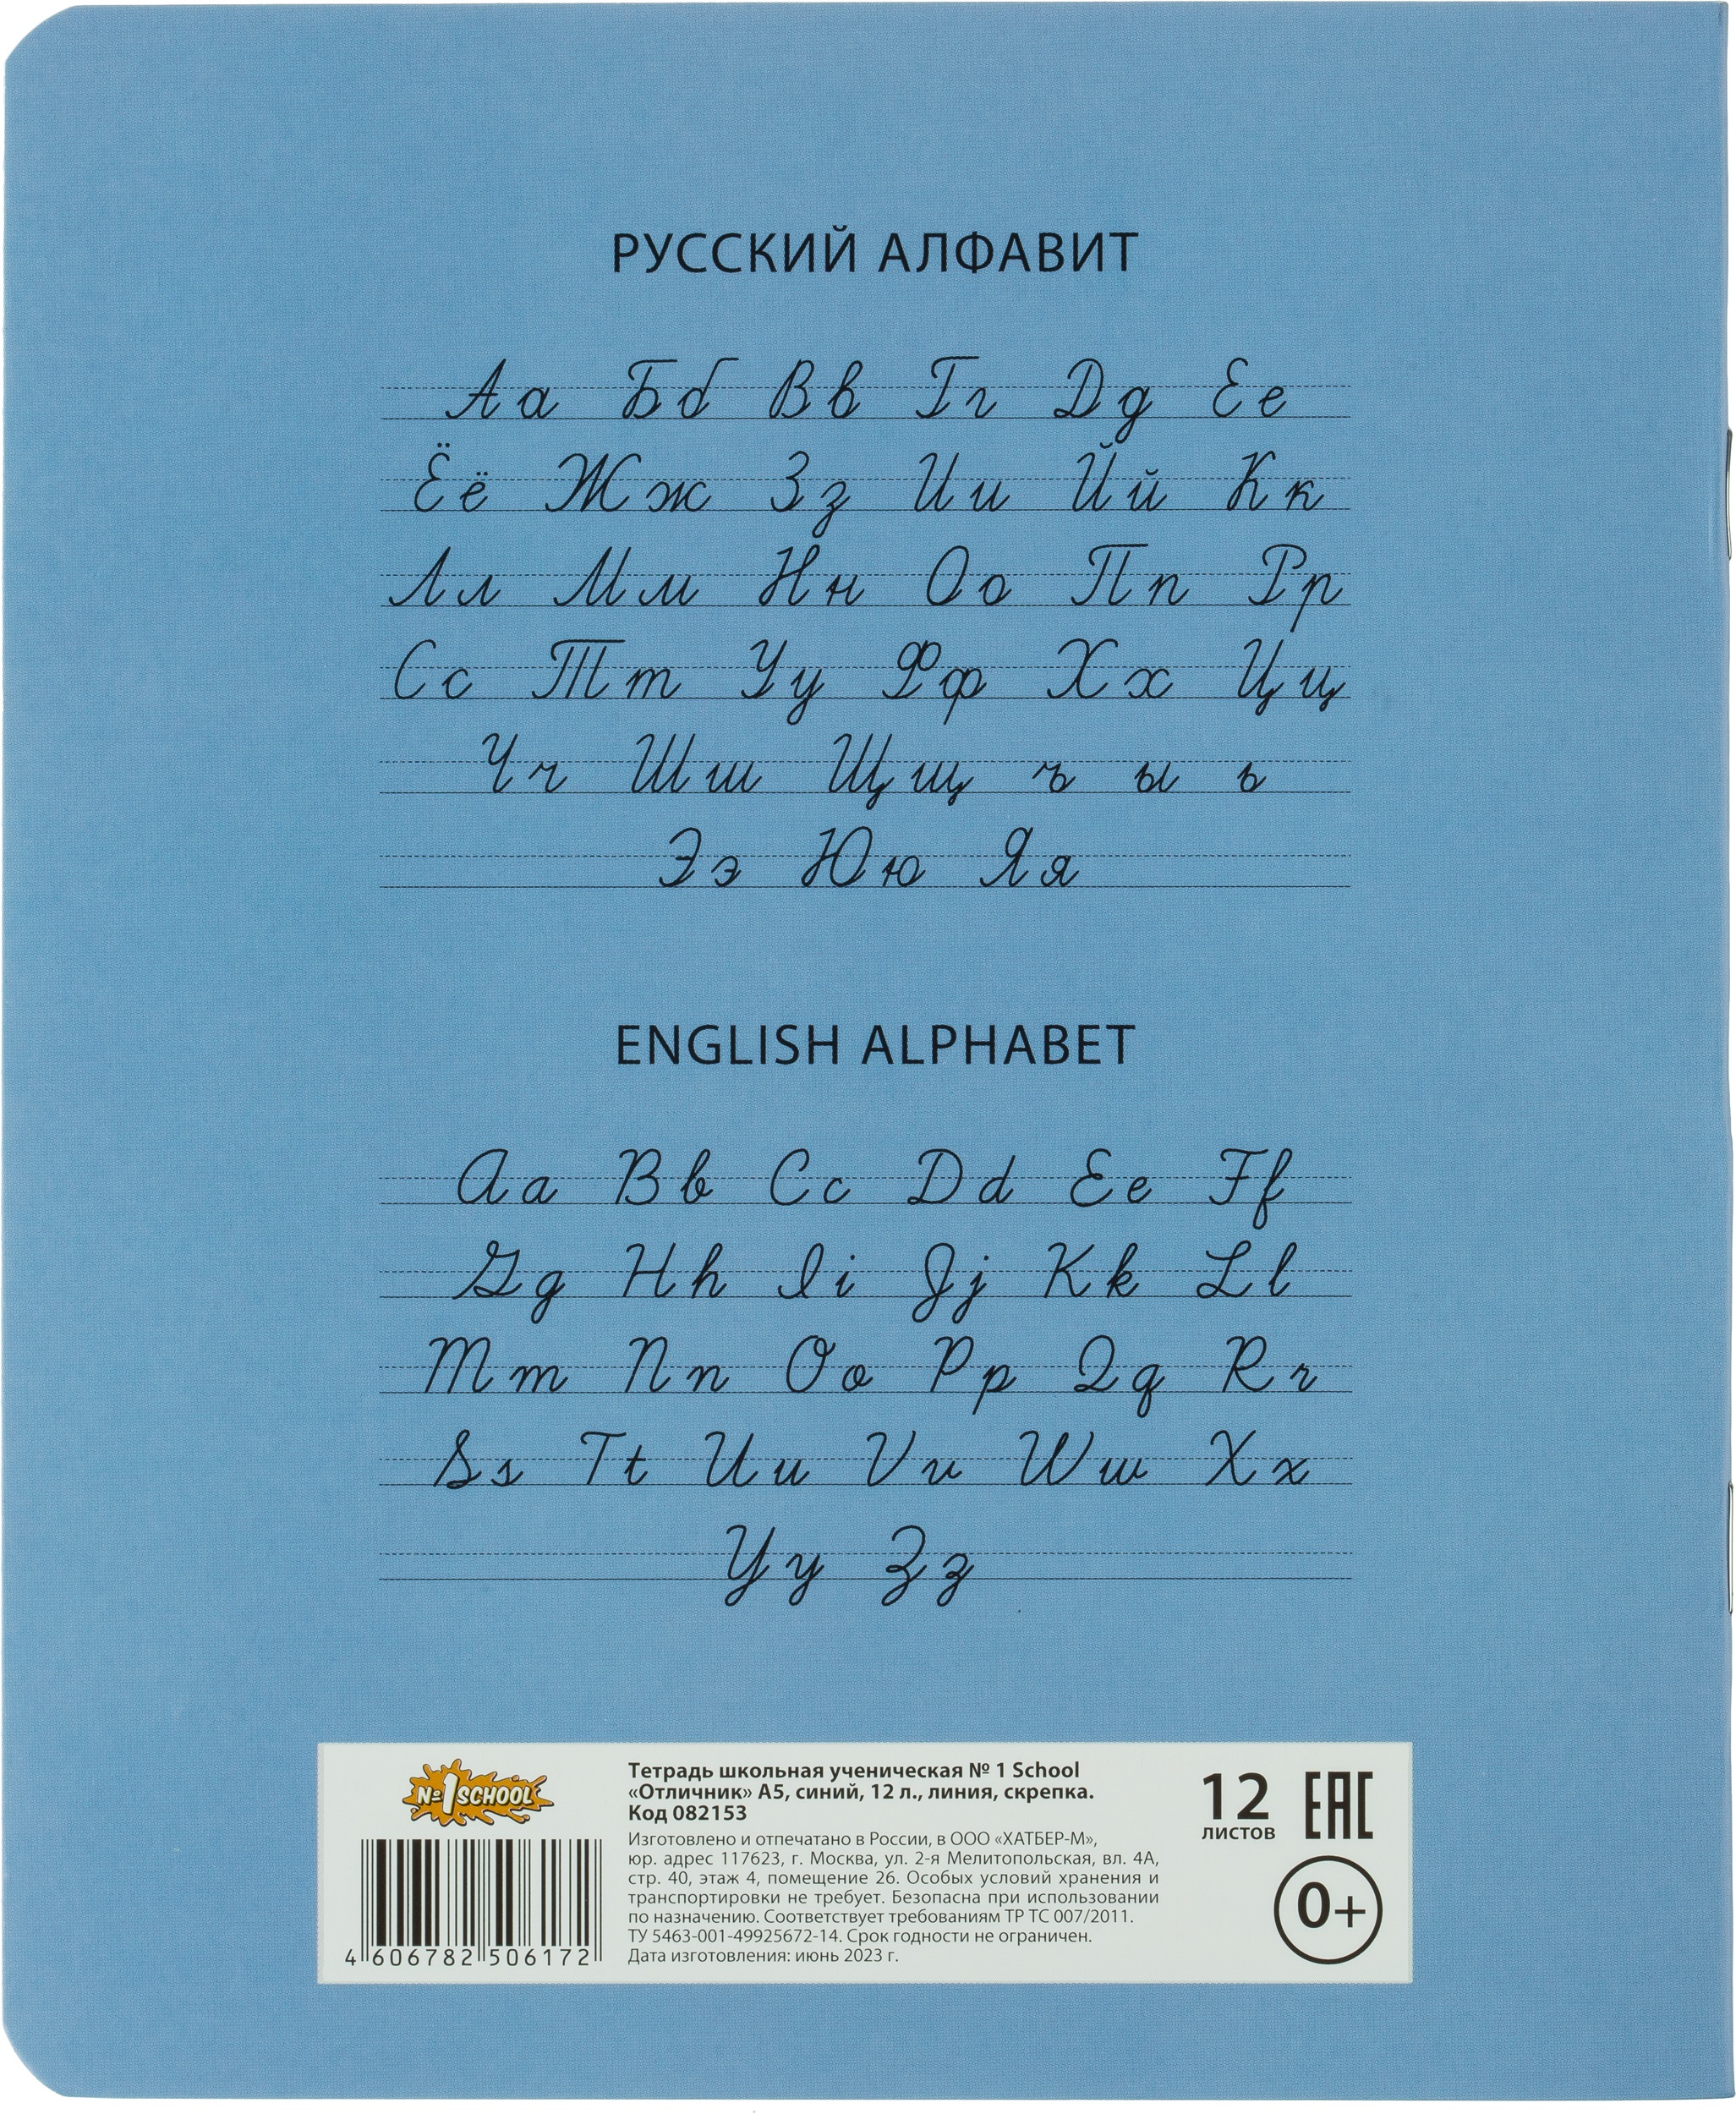 РУССКИЙ АЛФАВИТ
Аа Бб Вв Гг Дд Ее
Ёё Жж Зз Ии Йй Кк
Лл Мм Нн Оо Пп Рр
Сс Тт Уу Фф Хх Цц
Чч Шш Щщ ъ ы ь
Ээ Юю Яя
ENGLISH ALPHABET
Aa Bb Cc Dd Ee Ff
Gg Hh Ii Jj Kk Ll
Mm Nn Oo Pp Qq Rr
Ss Tt Uu Vv Ww Xx
Yy Zz
№1 SCHOOL
4 606782 506172
Тетрадь школьная ученическая № 1 School
«Отличник» А5, синий, 12 л., линия, скрепка.
Код 082153
Изготовлено и отпечатано в России, в ООО «ХАТБЕР-М»,
юр. адрес 117623, г. Москва, ул. 2-я Мелитопольская, вл. 4А,
стр. 40, этаж 4, помещение 26. Особых условий хранения и
транспортировки не требует. Безопасна при использовании
по назначению. Соответствует требованиям ТР ТС 007/2011.
ТУ 5463-001-49925672-14. Срок годности не ограничен.
Дата изготовления: июнь 2023 г.
12
листов
EAC
0+